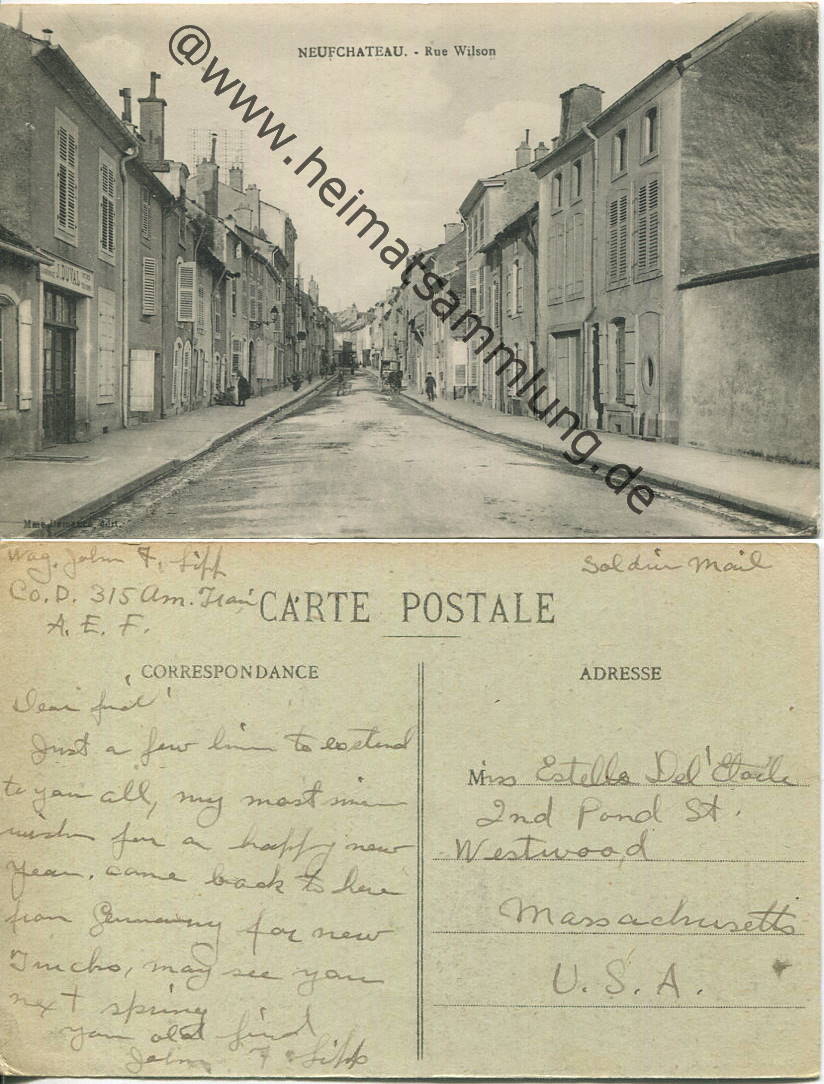 NEUFCHATEAU. - Rue Wilson
@www.heimatsammlung.de
J. DUVAL
Mme édit.
Wag. John F. Sipp
Co. D. 315 Am. Train
A. E. F.
Soldier Mail
CARTE POSTALE
CORRESPONDANCE
ADRESSE
Dear frid
Just a few lines to extend
to you all, my most
wish for a happy new
year. came back to here
from Germany for new
Trucks, may see you
next spring
your old frind
John F Sipp
Miss Estelle Del'Etoile
2nd Pond St.
Westwood
Massachusetts
U. S. A.